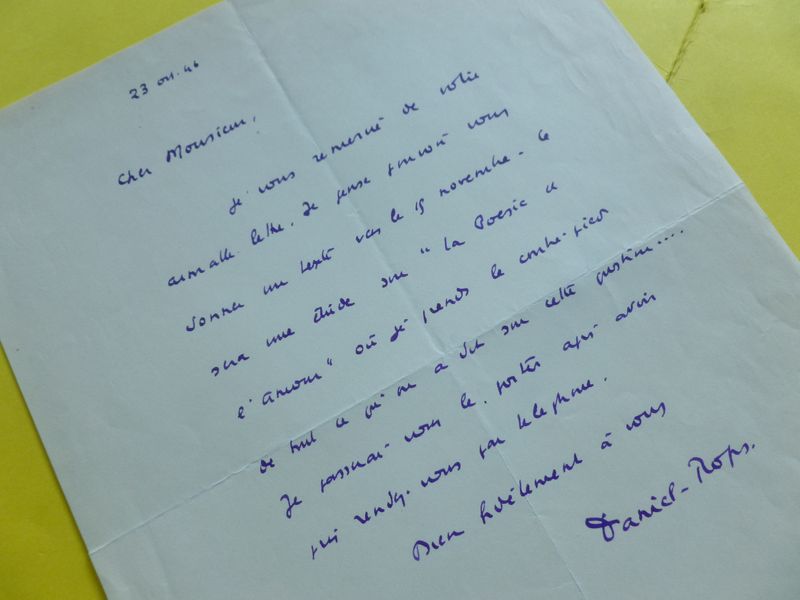 23 oct. 46
Cher Monsieur,
Je vous remercie de votre
aimable lettre. Je pense pouvoir vous
donner un texte vers le 15 novembre - Ce
sera une étude sur "La Poésie et
l'amour" où je prends le contre-pied
de tout ce qu'on a dit sur cette question....
Je passerai vous le porter après avoir
pris rendez-vous par téléphone.
Bien fidèlement à vous
Daniel-Rops.